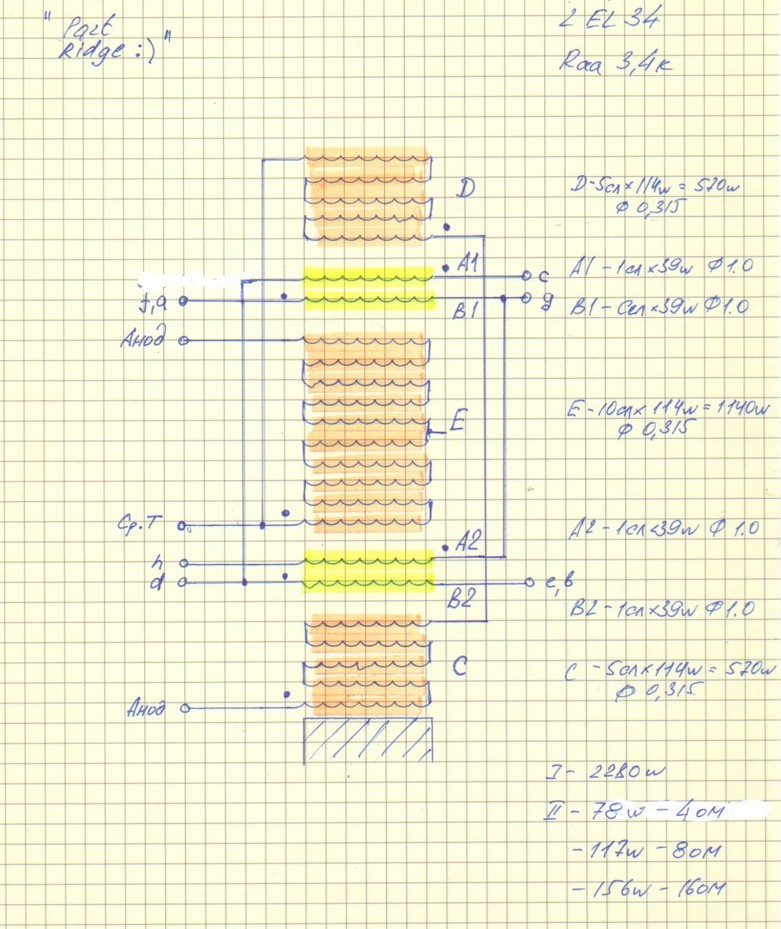 " Part
Ridge :) "
2 EL 34
Raa 3,4к
D
D-5сл×114w = 570w
Ф 0,315
A1
c
A1 - 1сл×39w Ф1.0
f,a
B1
g
B1 - 1сл×39w Ф1.0
Анод
E
E-10сл×114w = 1140w
Ф 0,315
Ср.Т
A2
A2-1сл×39w Ф1.0
h
d
B2
e,b
B2-1сл×39w Ф1.0
C
C -5сл×114w = 570w
Ф 0,315
Анод
I- 2280w
II - 78w - 4ом
-117w - 8ом
-156w - 16ом